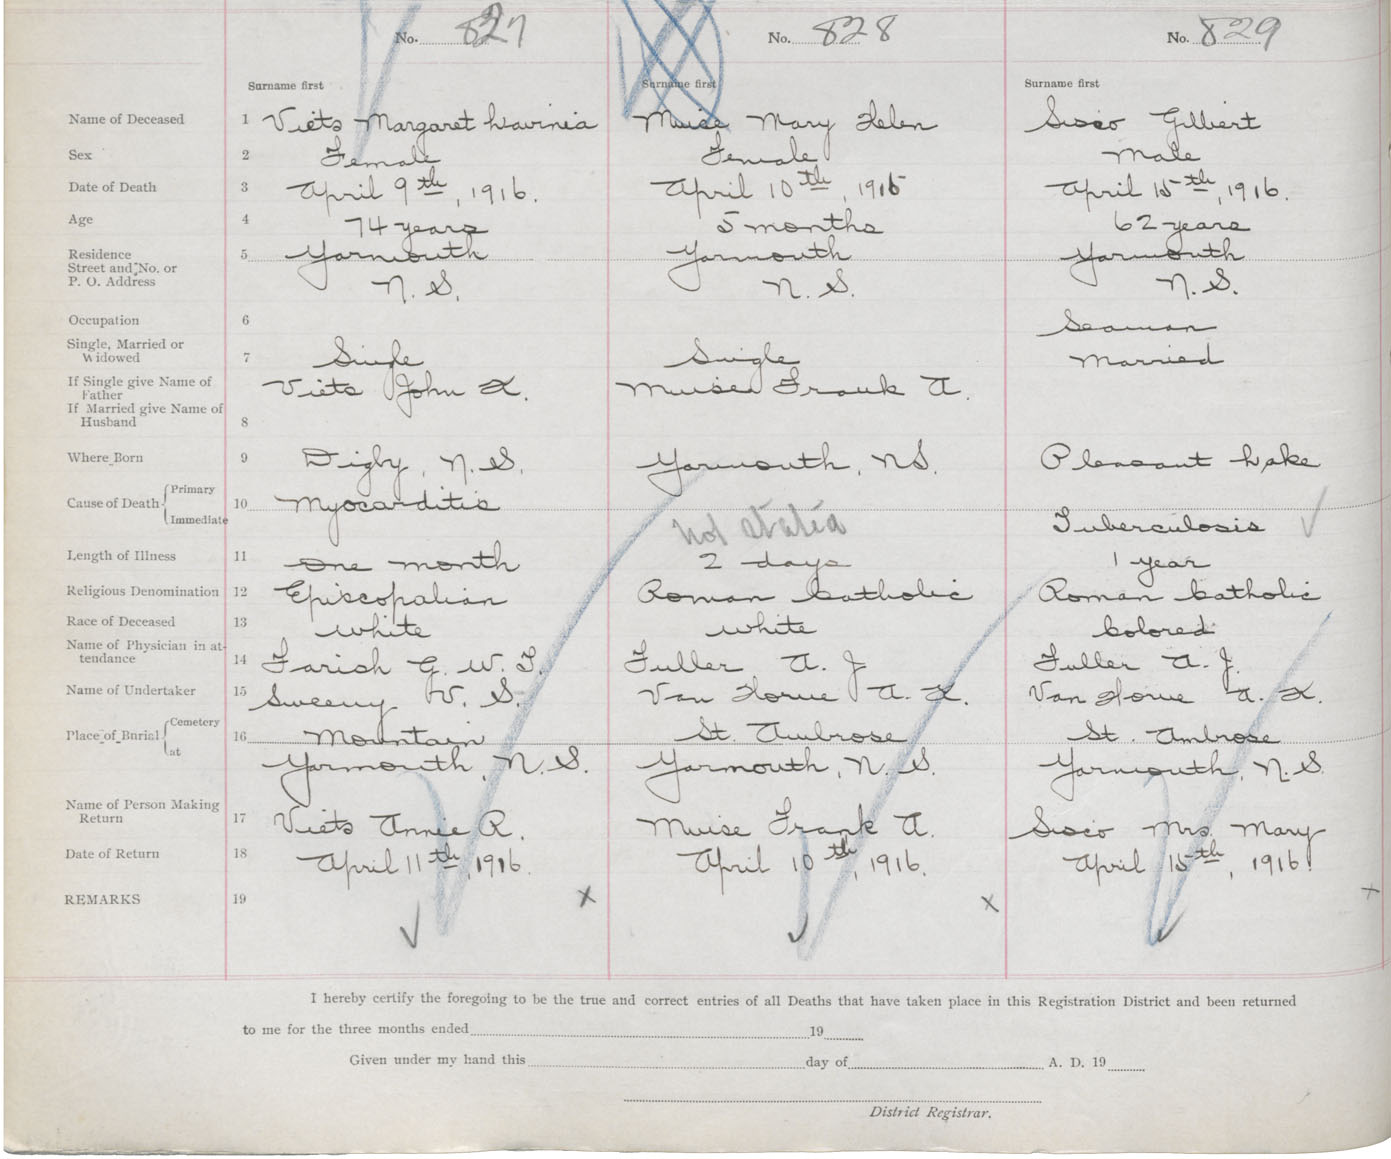 No. 827 No. 828 No. 829
Surname first Surname first Surname first
Name of Deceased 1 Viets Margaret Lavinia Muise Mary Helen Sisco Gilbert
Sex 2 Female Female Male
Date of Death 3 April 9th, 1916. April 10th, 1916 April 15th, 1916.
Age 4 74 years 5 months 62 years
Residence 5 Yarmouth Yarmouth Yarmouth
Street and No. or
P. O. Address N. S. N. S. N. S.
Occupation 6 Seaman
Single, Married or
Widowed 7 Single Single Married
If Single give Name of
Father Viets John Muise Frank A.
If Married give Name of
Husband 8
Where Born 9 Digby, N. S. Yarmouth, N.S. Pleasant Lake
Primary
Cause of Death 10 Myocarditis
Immediate not stated Tuberculosis
Length of Illness 11 one month 2 days 1 year
Religious Denomination 12 Episcopalian Roman Catholic Roman Catholic
Race of Deceased 13 white white Colored
Name of Physician in at-
tendance 14 Farish G. W. T. Fuller A. J. Fuller A. J.
Name of Undertaker 15 Sweeny V. S. Van Horne A. K. Van Horne A. K.
Cemetery
Place of Burial 16 Mountain St. Ambrose St. Ambrose
at Yarmouth, N. S. Yarmouth, N. S. Yarmouth, N. S.
Name of Person Making
Return 17 Viets Annie R. Muise Frank A. Sisco Mrs. Mary
Date of Return 18 April 11th, 1916. April 10th, 1916. April 15th, 1916.
REMARKS 19 x x x
I hereby certify the foregoing to be the true and correct entries of all Deaths that have taken place in this Registration District and been returned
to me for the three months ended 19
Given under my hand this day of A. D. 19
District Registrar.